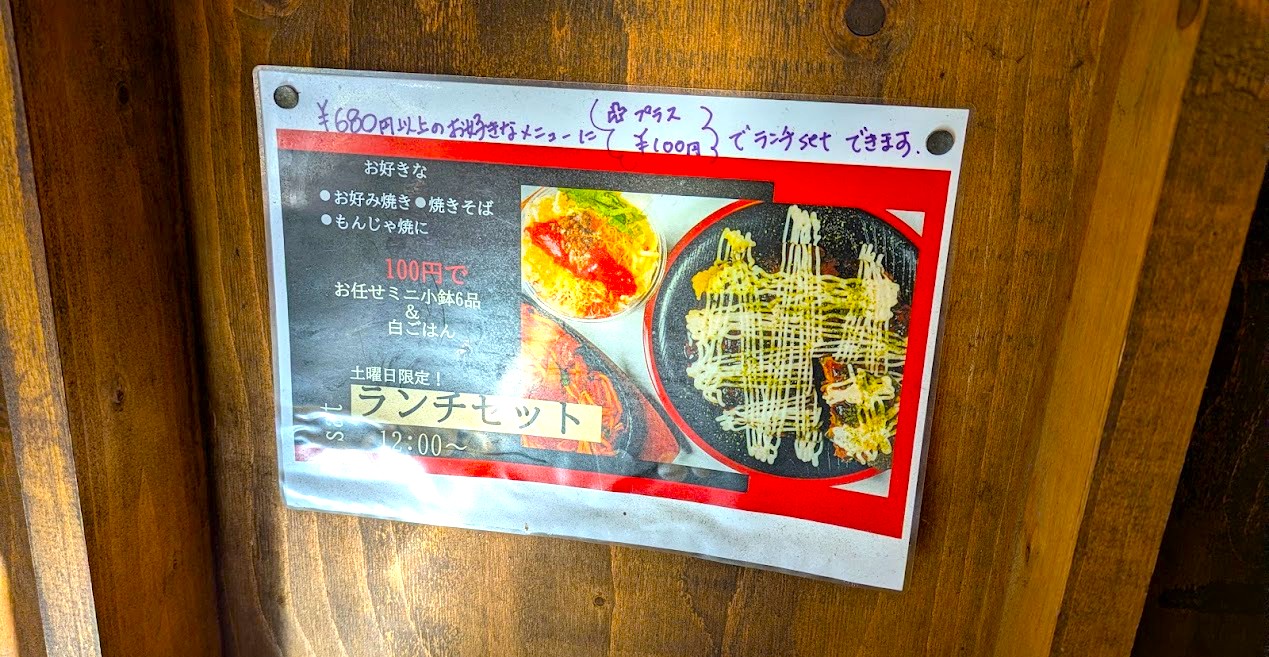 ¥680円以上のお好きなメニューに(プラス ¥100円)でランチsetできます.
お好きな
●お好み焼き●焼きそば
●もんじゃ焼に
100円で
お任せミニ小鉢6品
&
白ごはん
土曜日限定!
ランチセット
sat
12:00〜